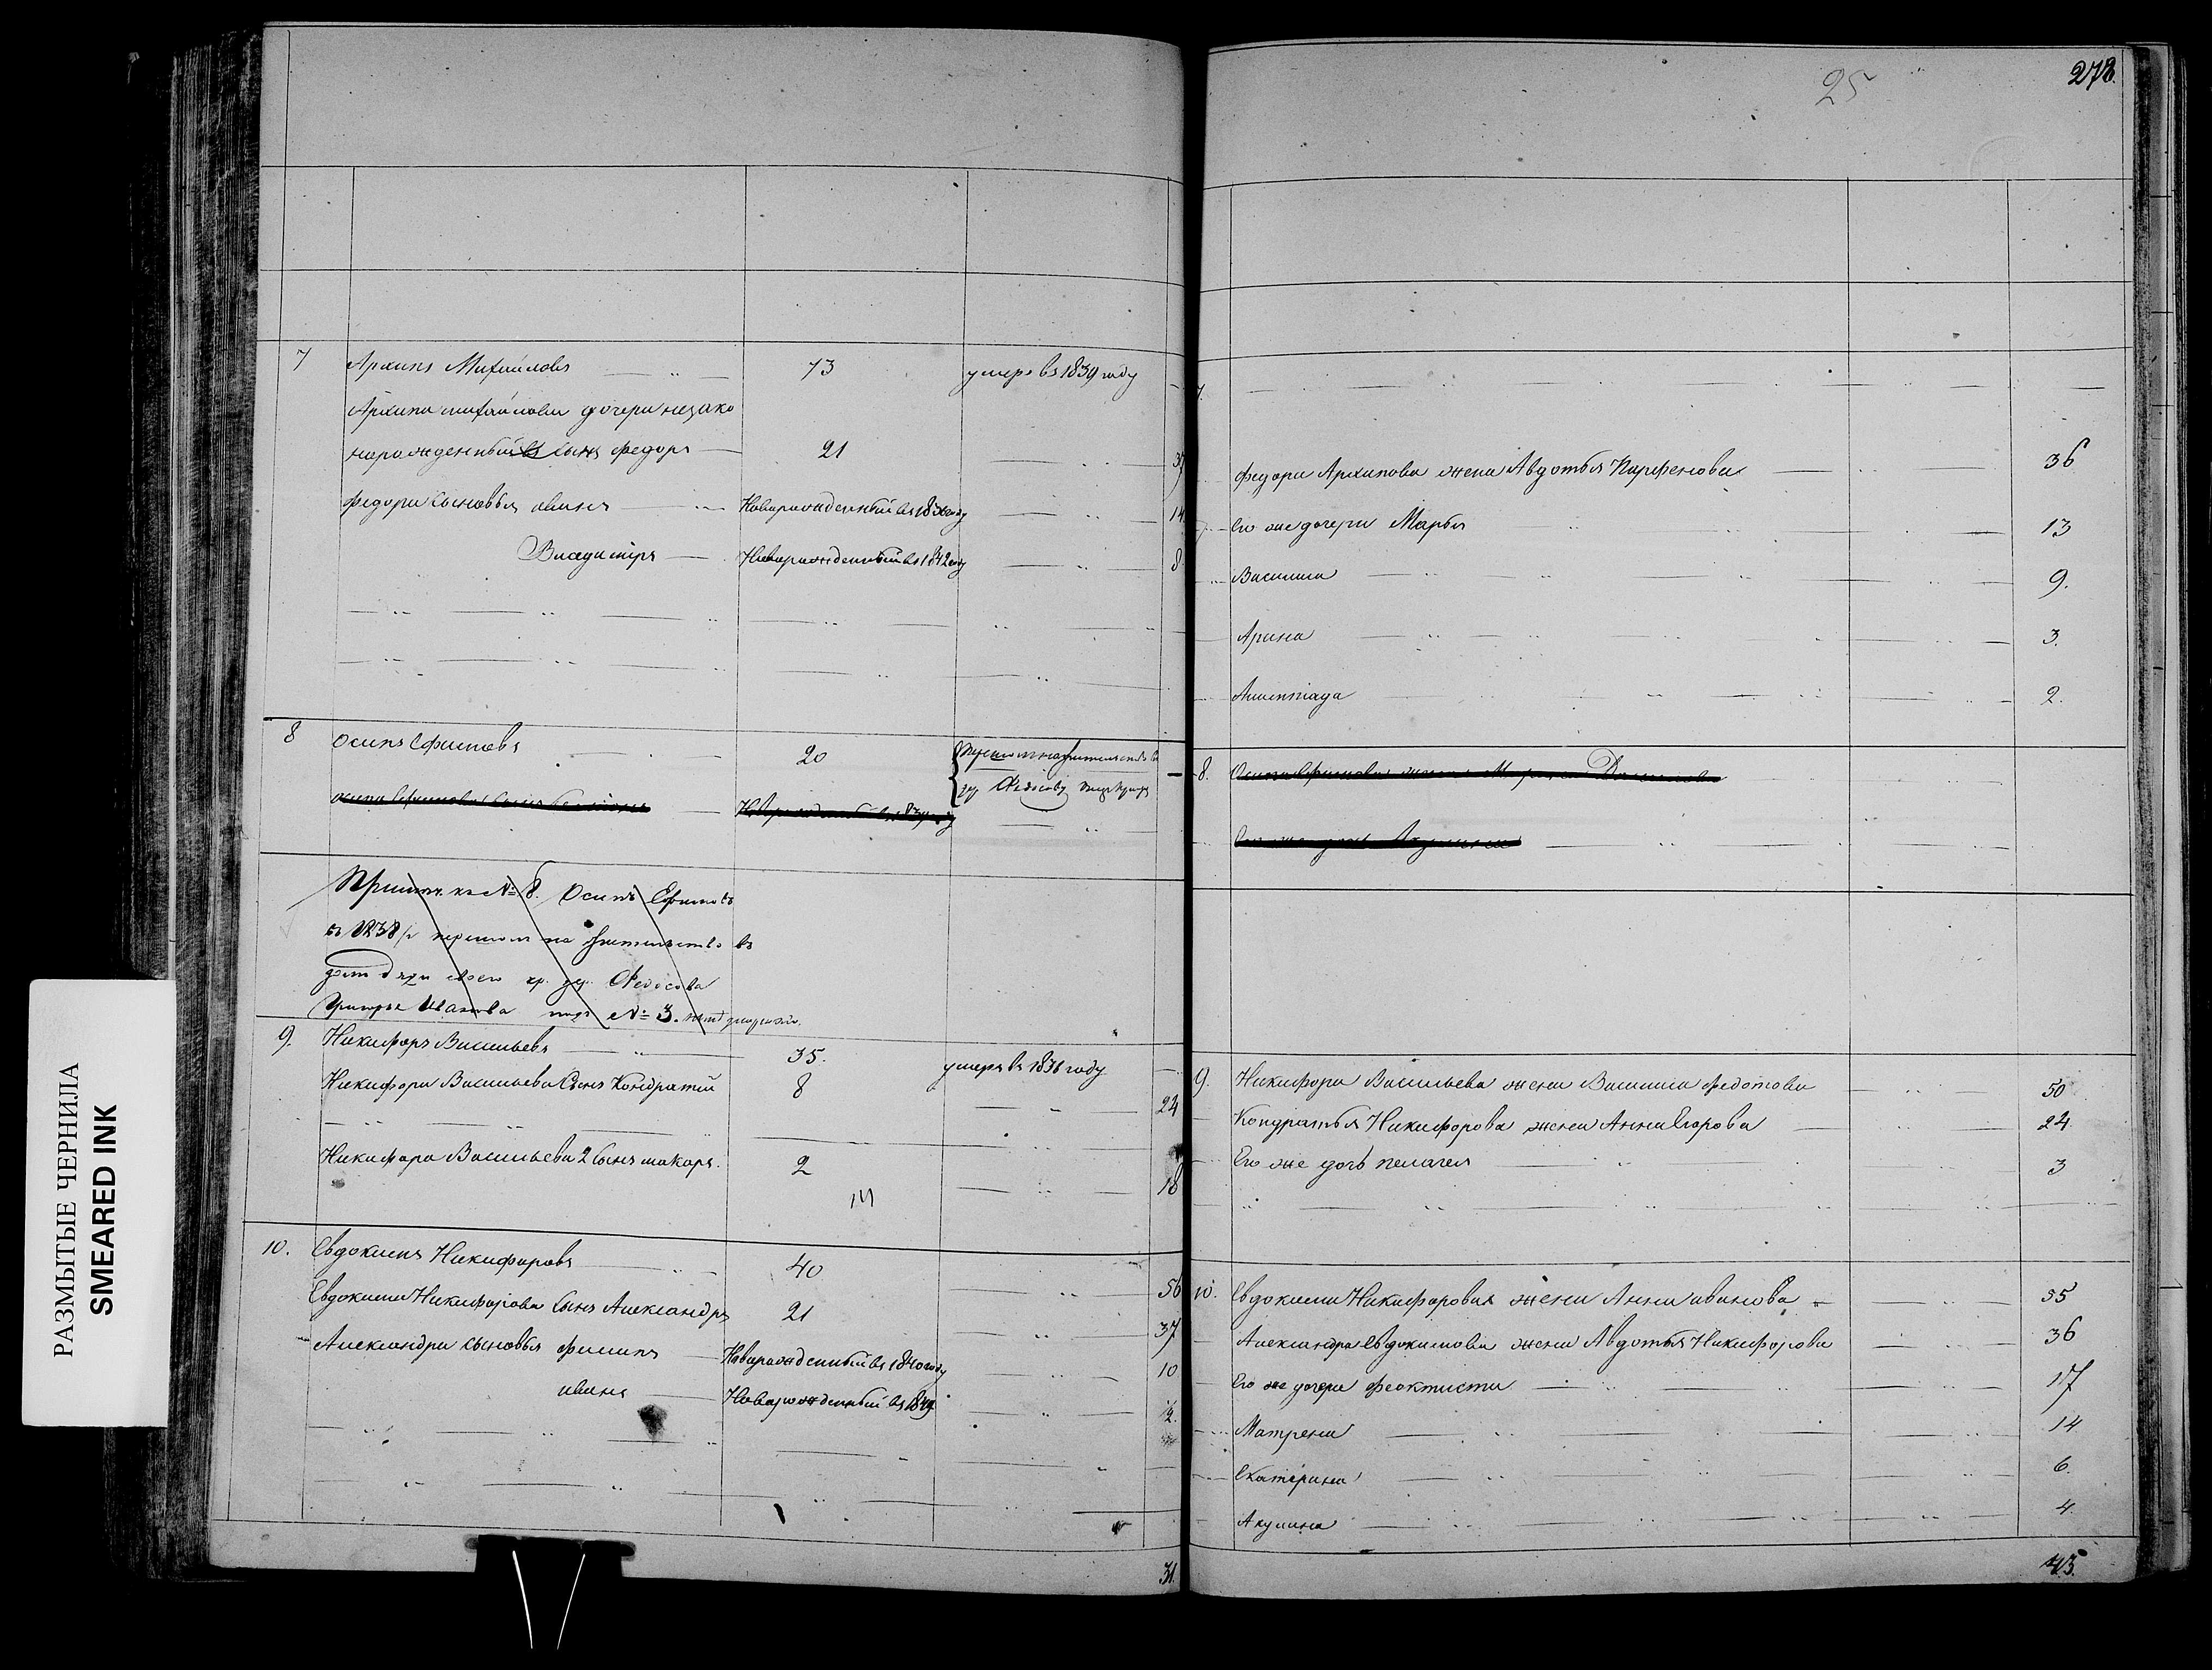 25
278.
7 Архипъ Михайловъ 73 умеръ въ 1839 году
Архипа михайлова дочери незако
норожденный сынъ федоръ 21 37
федора сыновья иванъ Новорожденный въ 1836 году 14
Владимiръ Новорожденный въ 1842 году 8
федора Архипова жена Авдотья Парфенова 36
его же дочери Марья 13
Василиса 9.
Арина 3.
Олимпiада 2.
8 Осипъ Ефимовъ 20
8.
къ № 8. Осипъ Ефимовъ
въ 1838 г. перешолъ на жительство въ
домъ дяди своего кр. дер.
Иванова подъ № 3.
9. Никифоръ Васильевъ 35. умеръ въ 1836 году
Никифора Васильева сынъ Кондратiй 8 24
Никифора Васильева 2 сынъ макаръ. 2 18
9. Никифора Васильева жена Василиса федотова 50
Кондратья Никифорова жена Анна Егорова 24
Его же дочь пелагея 3
10. Евдокимъ Никифоровъ 40 56
Евдокима Никифорова сынъ Александръ 21 37
Александра сыновья филипъ Новорожденный въ 1840 году 10
иванъ Новорожденный въ
10. Евдокима Никифорова жена Анна иванова 55
Александра Евдокимова жена Авдотья Никифорова 36
его же дочери феоктиста 17
Матрена 14
Екатерина 6.
Акулина 4.
31.
РАЗМЫТЫЕ ЧЕРНИЛА
SMEARED INK